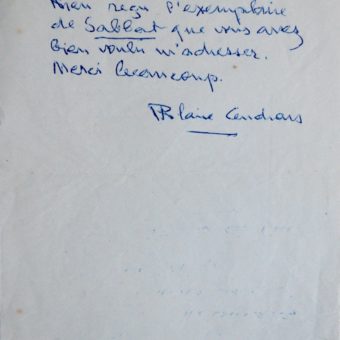 Bien reçu l'exemplaire
de Sabbat que vous avez
bien voulu m'adresser.
Merci beaucoup.
Blaise Cendrars